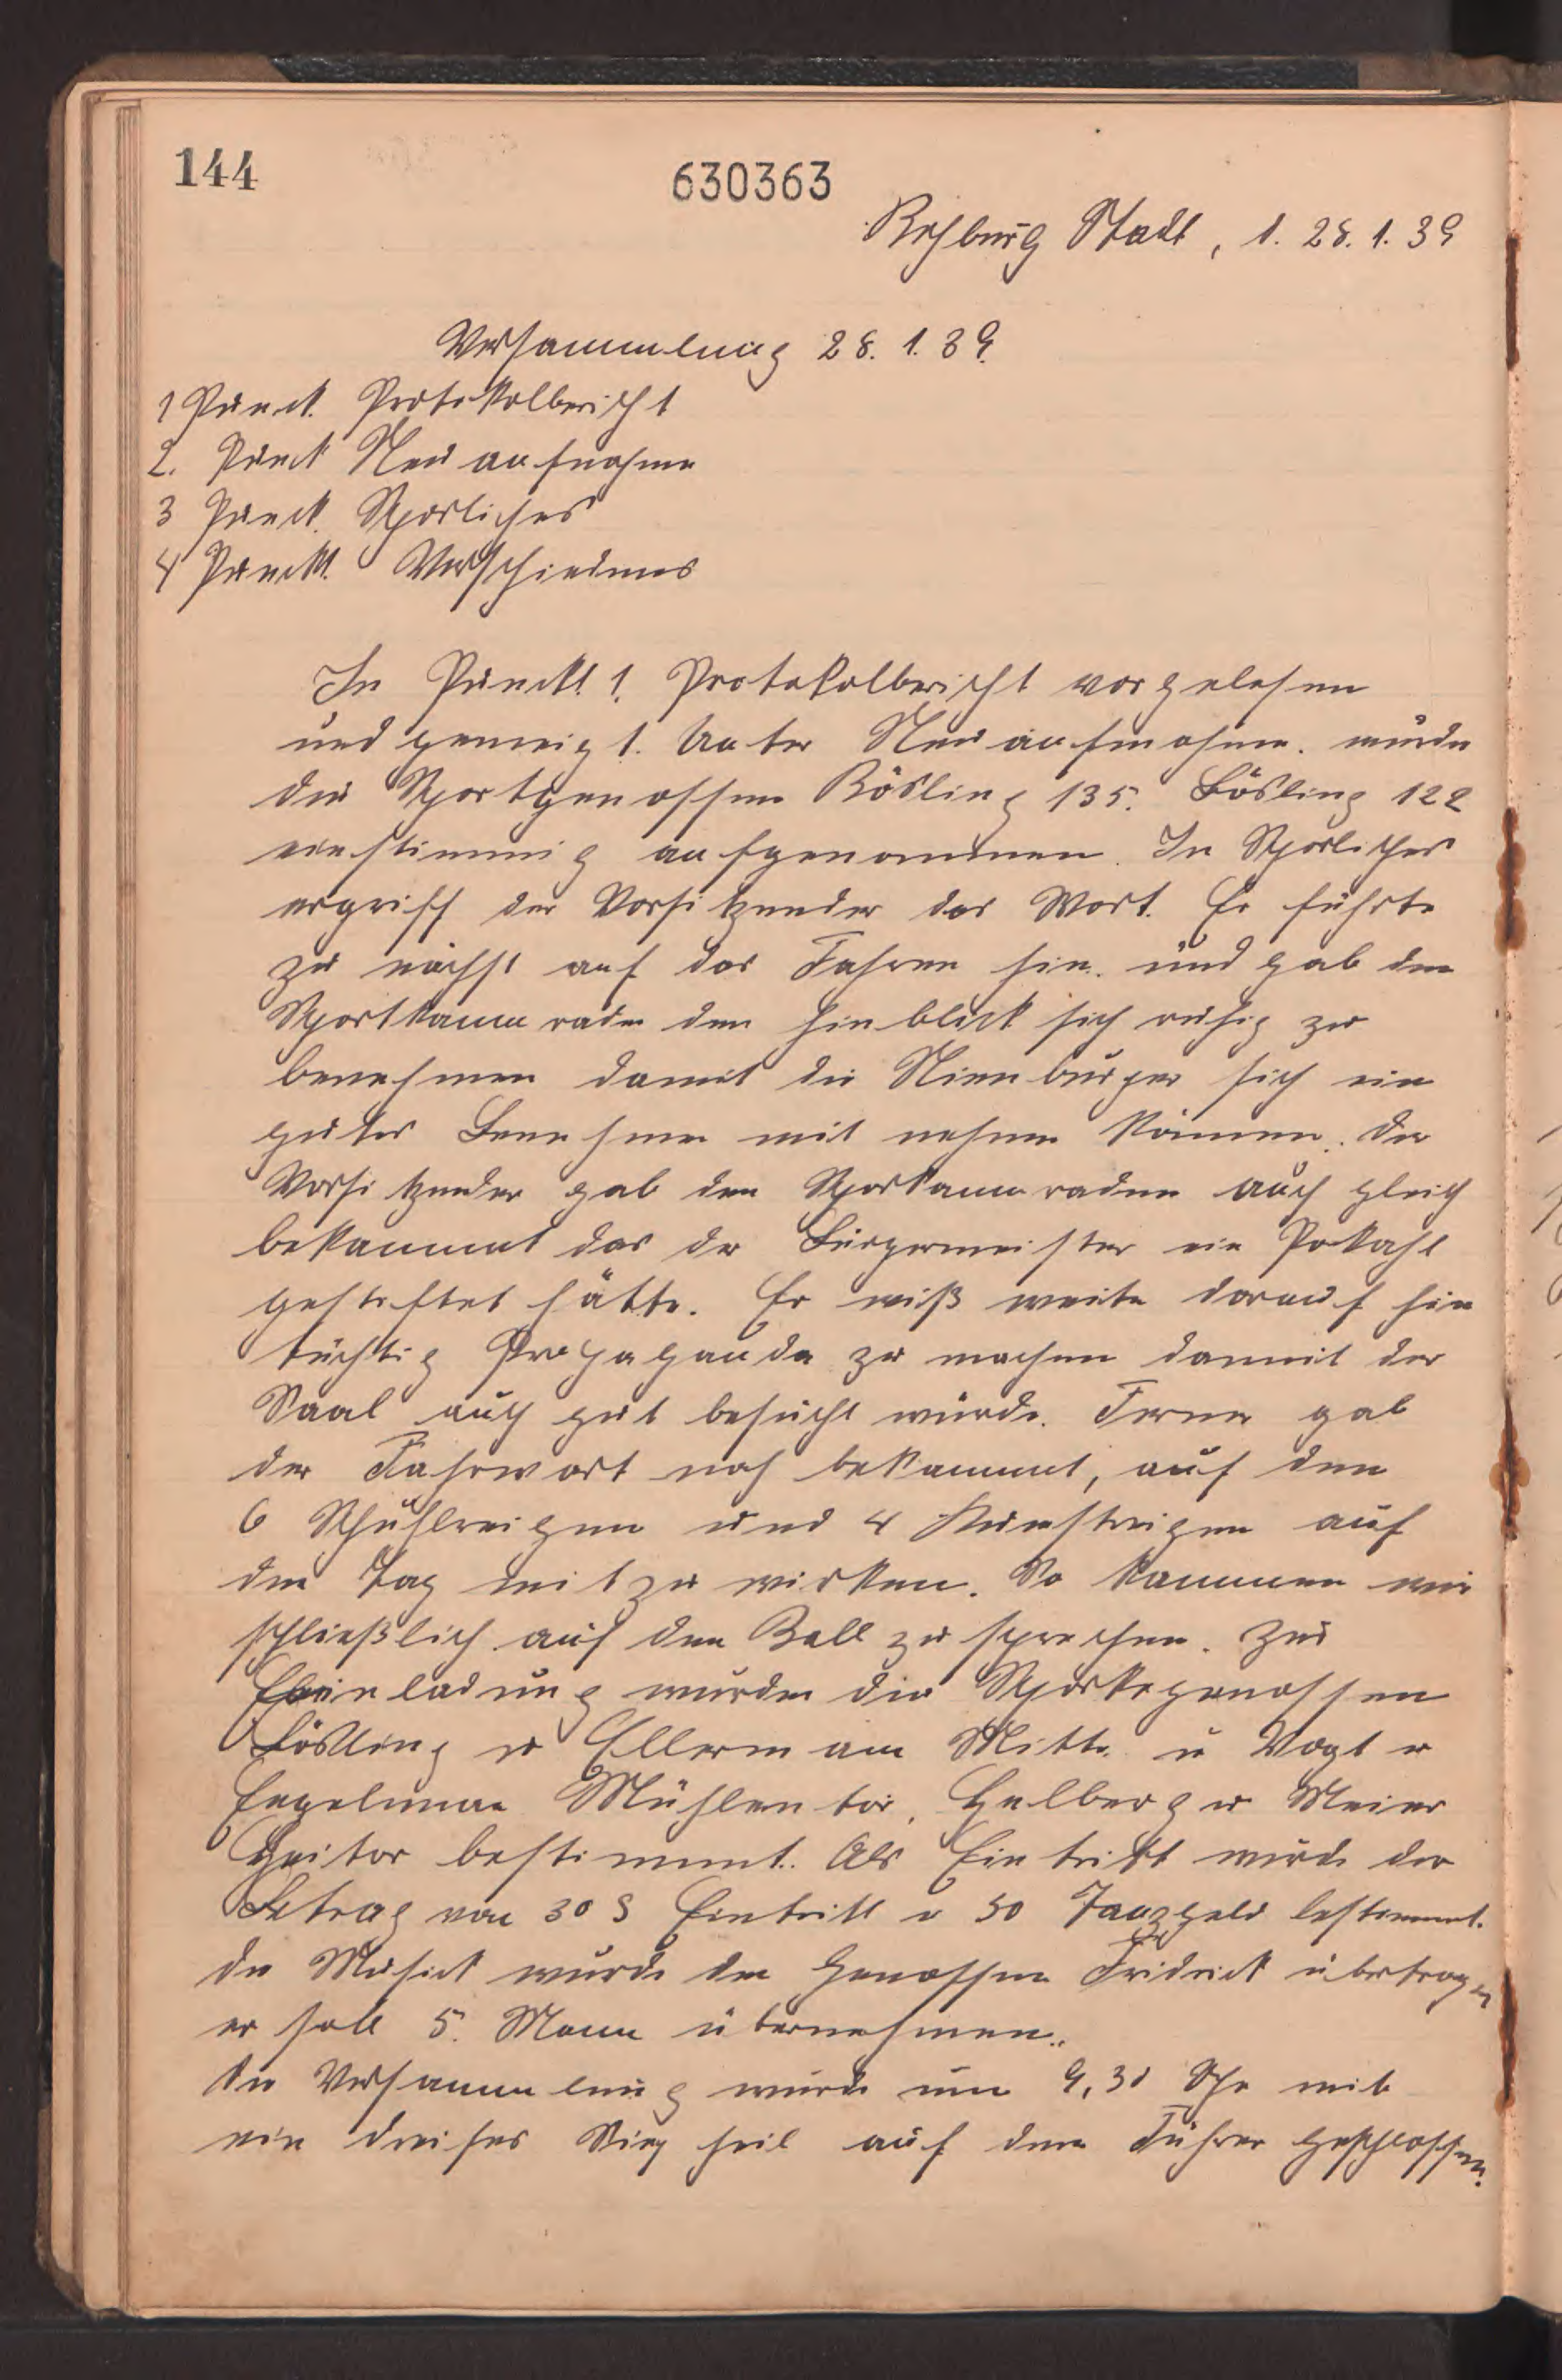 144
630363
Rehburg Stadt, d. 28. 1. 39
Versammlung 28. 1. 39.
1 Punct. Protokolbericht
2. Punct Neu aufnahme
3 Punct. Sporliches
4 Punckt. Verschiedenes
In Punckt 1. Protokolbericht vorgelesen
und geneigt. Unter Neu aufnahme. wurde
die Sportgenossen Bösling 135. Lösling 122
einstimmig aufgenommen. In Sporliches
ergriff der Vorsitzender das Wort. Er führte
zu nächst auf das Fahren hin. und gab den
Sportkammraden den Hinblick sich ruhig zu
benehmen damit die Nienburger sich ein
gutes Benehmen mit nehmen können. Der
Vorsitzender gab den Sporkammraden auch gleich
bekannnt das der Bürgermeister ein Pokahl
gestiftet hätte. Er wiß weite darauf hin
tüchtig Propaganda zu machen dammit der
Saal auch gut besucht würde. Ferner gab
der Fahrwart noch bekannnt, auf den
6 Schuhlreigen und 4 Kunstreigen auf
den Tag mitzu wirken. So kammen wir
schließlich auf den Ball zu sprechen. Zur
Einladung wurden die Sportsgenossen
Lösling u Ellerman Mitte u Vogt u
Engelman Mühlentor, Helberg u Meier
Heitor bestimmt. Als Eintritt wurde der
Betrag von 30 § Eintritt u 50 Tanzgeld bestimmt.
die Musick wurde den Genossen Fridrick übertragen
er soll 5. Mann übernehmen..
Die Versammlung wurde um 9,30 Uhr mit
ein dreifes Sieg heil auf dem Führer geschlossen.